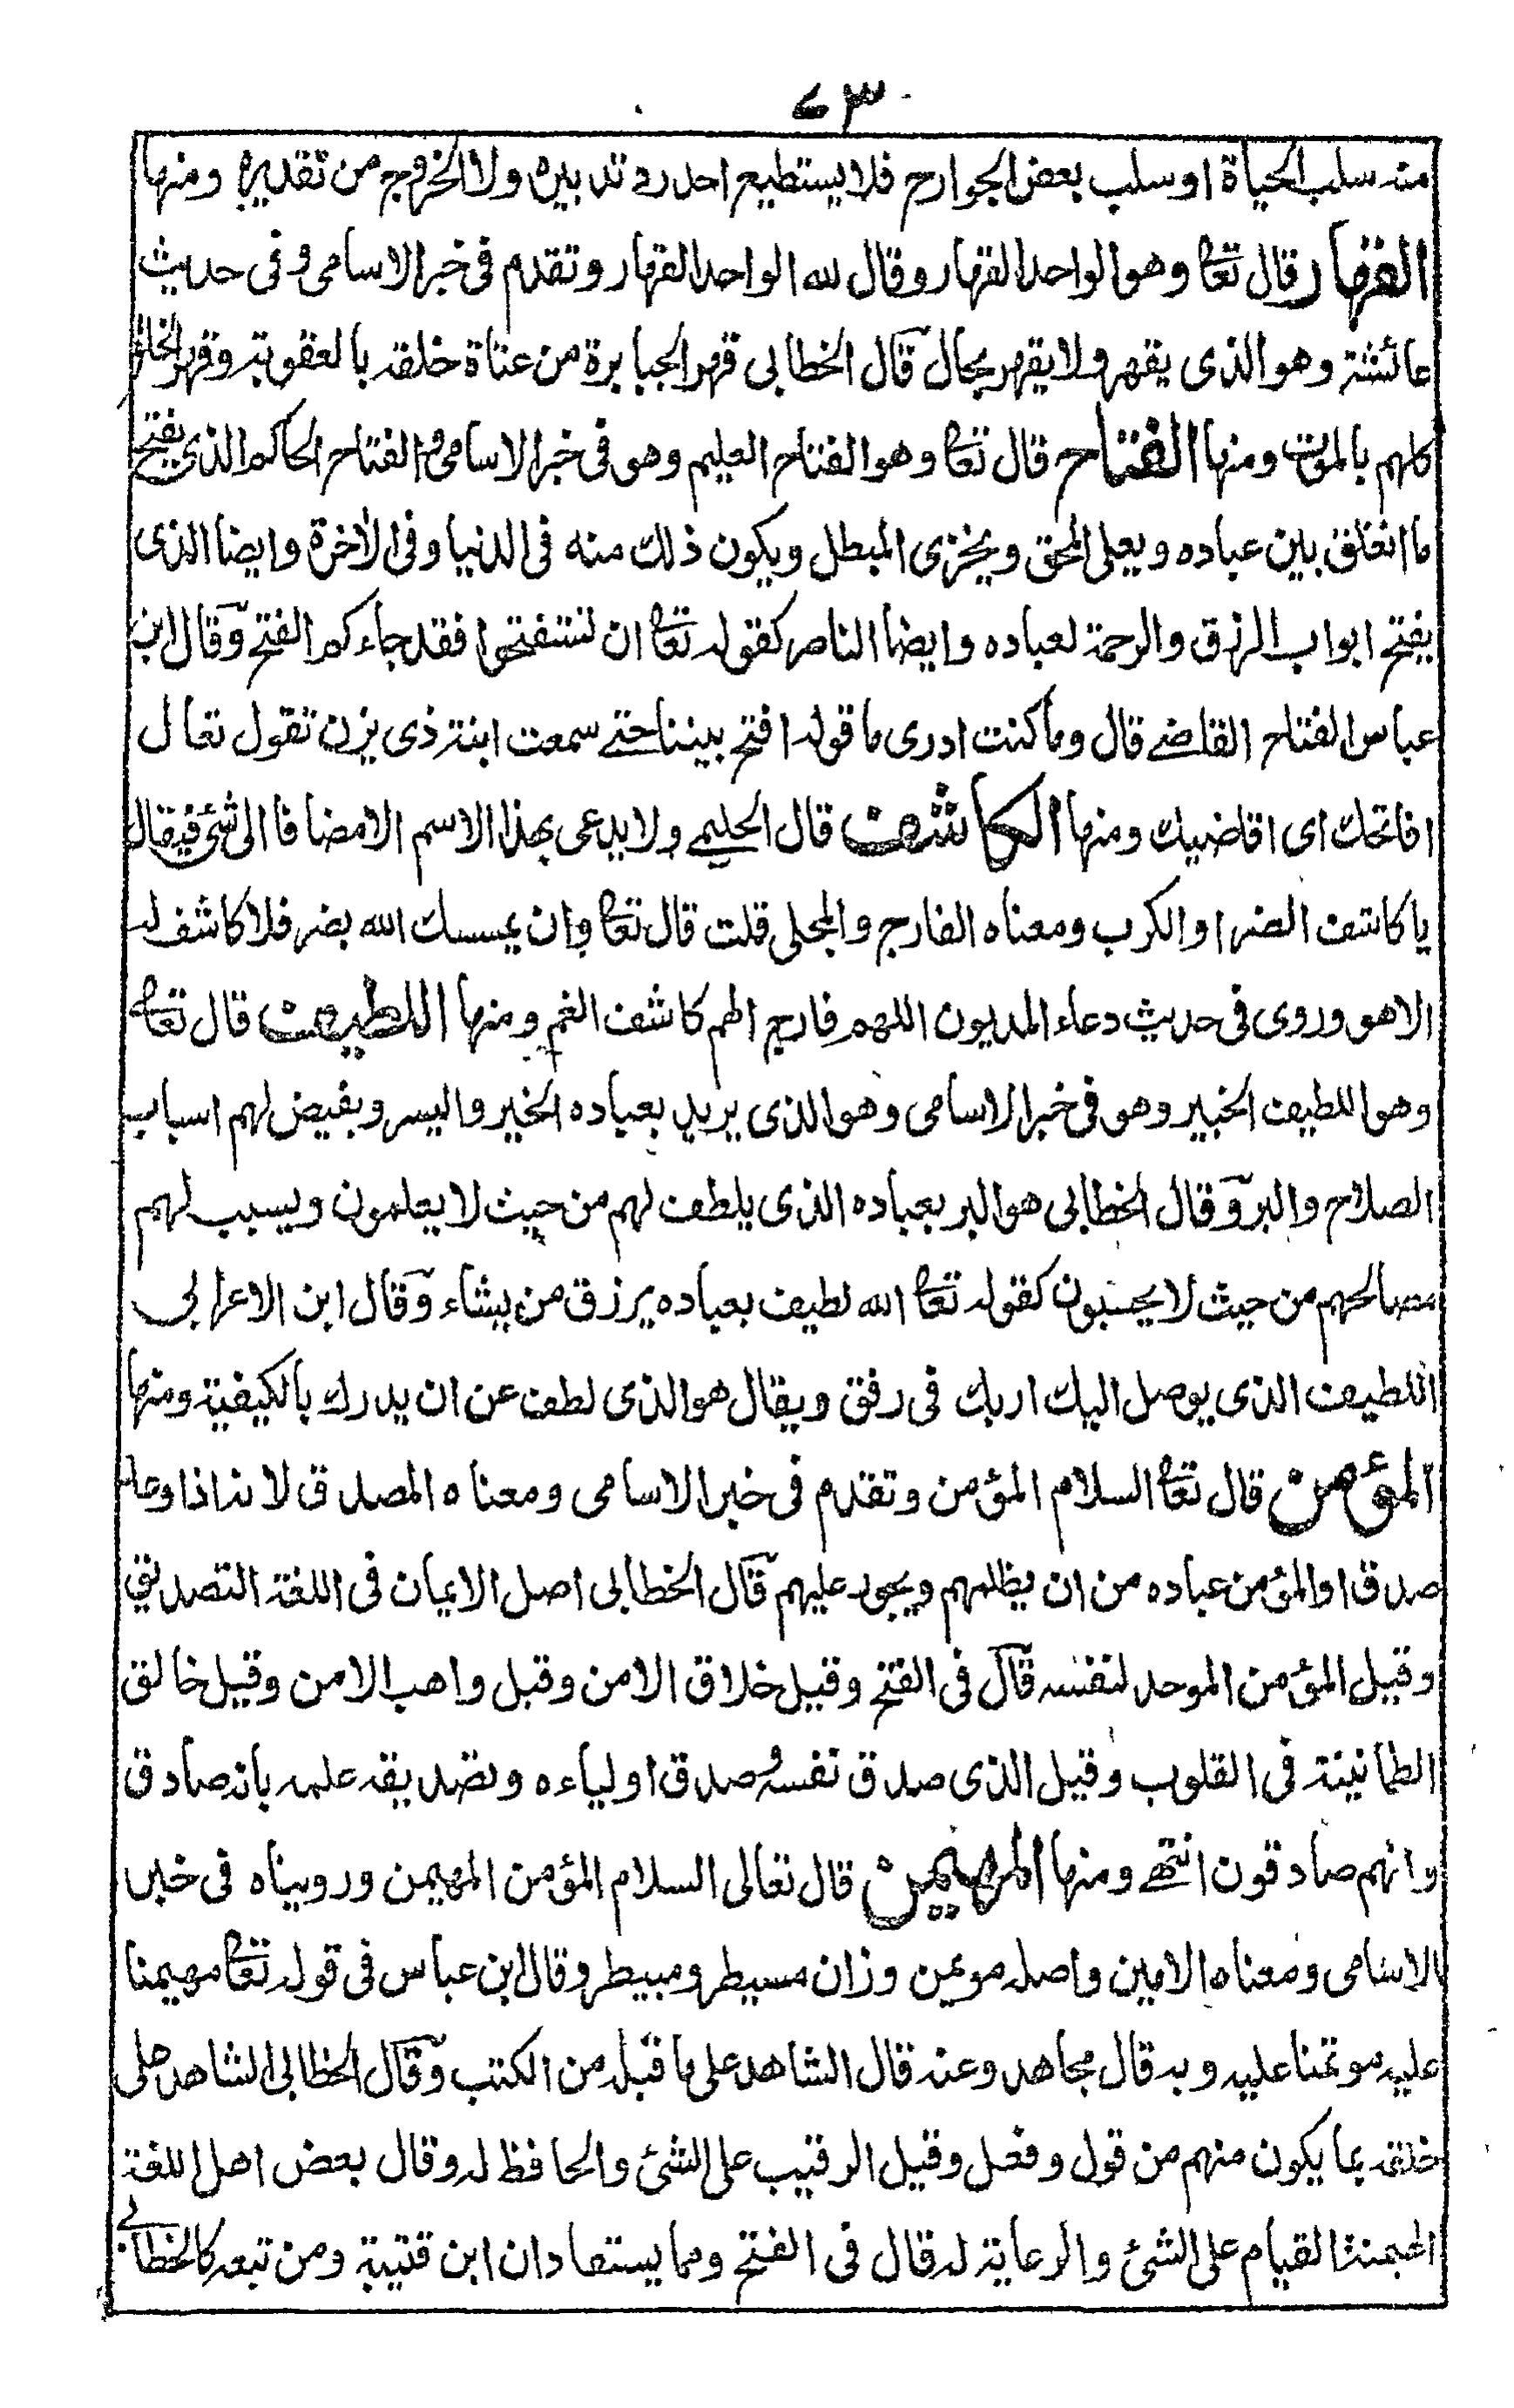 ٧٣
منه سلب الحياة او سلب بعض الجوارح فلا يستطيع احد رد تدبيره ولا الخروج من تقديره ومنها
القهار قال تعا وهو الواحد القهار وقال لله الواحد القهار وتقدم فى خبر الاسامى وفى حديث
عائشة وهو الذى يقهر ولا يقهر بحال قال الخطابى قهر الجبابرة من عتاة خلقه بالعقوبة وقهر الخلق
كلهم بالموت ومنها الفتاح قال تعا وهو الفتاح العليم وهو فى خبر الاسامى و الفتاح الحاكم الذى يفتح
ما انغلق بين عباده ويعلى المحق ويخزى المبطل ويكون ذلك منه فى الدنيا وفى الاٰخرة وايضا الذى
يفتح ابواب الرزق والرحمة لعباده وايضا الناصر كقوله تعا ان تستفتحوا فقد جاءكم الفتح وقال ابن
عباس الفتاح القاضے قال وما كنت ادرى ما قوله افتح بيننا حتے سمعت ابنة ذى يزن تقول تعال
افاتحك اى اقاضيك ومنها الكاشف قال الحليمے ولا يدعى بهذا الاسم الا مضافا الى شئ فيقال
يا كاشف الضر او الكرب ومعناه الفارج والمجلى قلت قال تعا وان يمسسك الله بضر فلا كاشف له
الا هو وروى فى حديث دعاء المديون اللهم فارج الهم كاشف الغم ومنها اللطيف قال تعا
وهو اللطيف الخبير وهو فى خبر الاسامى وهو الذى يريد بعباده الخير واليسر ويفيض لهم اسباب
الصلاح والبر وقال الخطابى هو البر بعباده الذى يلطف لهم من حيث لا يعلمون ويسبب لهم
مصالحهم من حيث لا يحتسبون كقوله تعا الله لطيف بعباده يرزق من يشاء وقال ابن الاعرابى
اللطيف الذى يوصل اليك اربك فى رفق ويقال هو الذى لطف عن ان يدرك بالكيفية ومنها
المؤمن قال تعا السلام المؤمن وتقدم فى خبر الاسامى ومعناه المصدق لانه اذا وعد
صدق او المؤمن عباده من ان يظلمهم ويجور عليهم قال الخطابى اصل الايمان فى اللغة التصديق
وقيل المؤمن الموحد لنفسه قال فى الفتح وقيل خلاق الامن وقيل واهب الامن وقيل خالق
الطمانينة فى القلوب وقيل الذى صدق نفسه و صدق اولياءه وتصديقه علمه بانه صادق
وانهم صادقون انتهے ومنها المهيمن قال تعالى السلام المؤمن المهيمن ورويناه فى خبر
الاسامى ومعناه الامين واصله مويمن وزان مسيطر ومبيطر وقال ابن عباس فى قوله تعا مهيمنا
عليه موتمنا عليه وبه قال مجاهد وعنه قال الشاهد على ما قبله من الكتب وقال الخطابى الشاهد على
خلقه بما يكون منهم من قول وفعل وقيل الرقيب على الشئ والحافظ له وقال بعض اهل اللغة
الهيمنة القيام على الشئ والرعاية له قال فى الفتح ومما يستفاد ان ابن قتيبة ومن تبعه كالخطابے